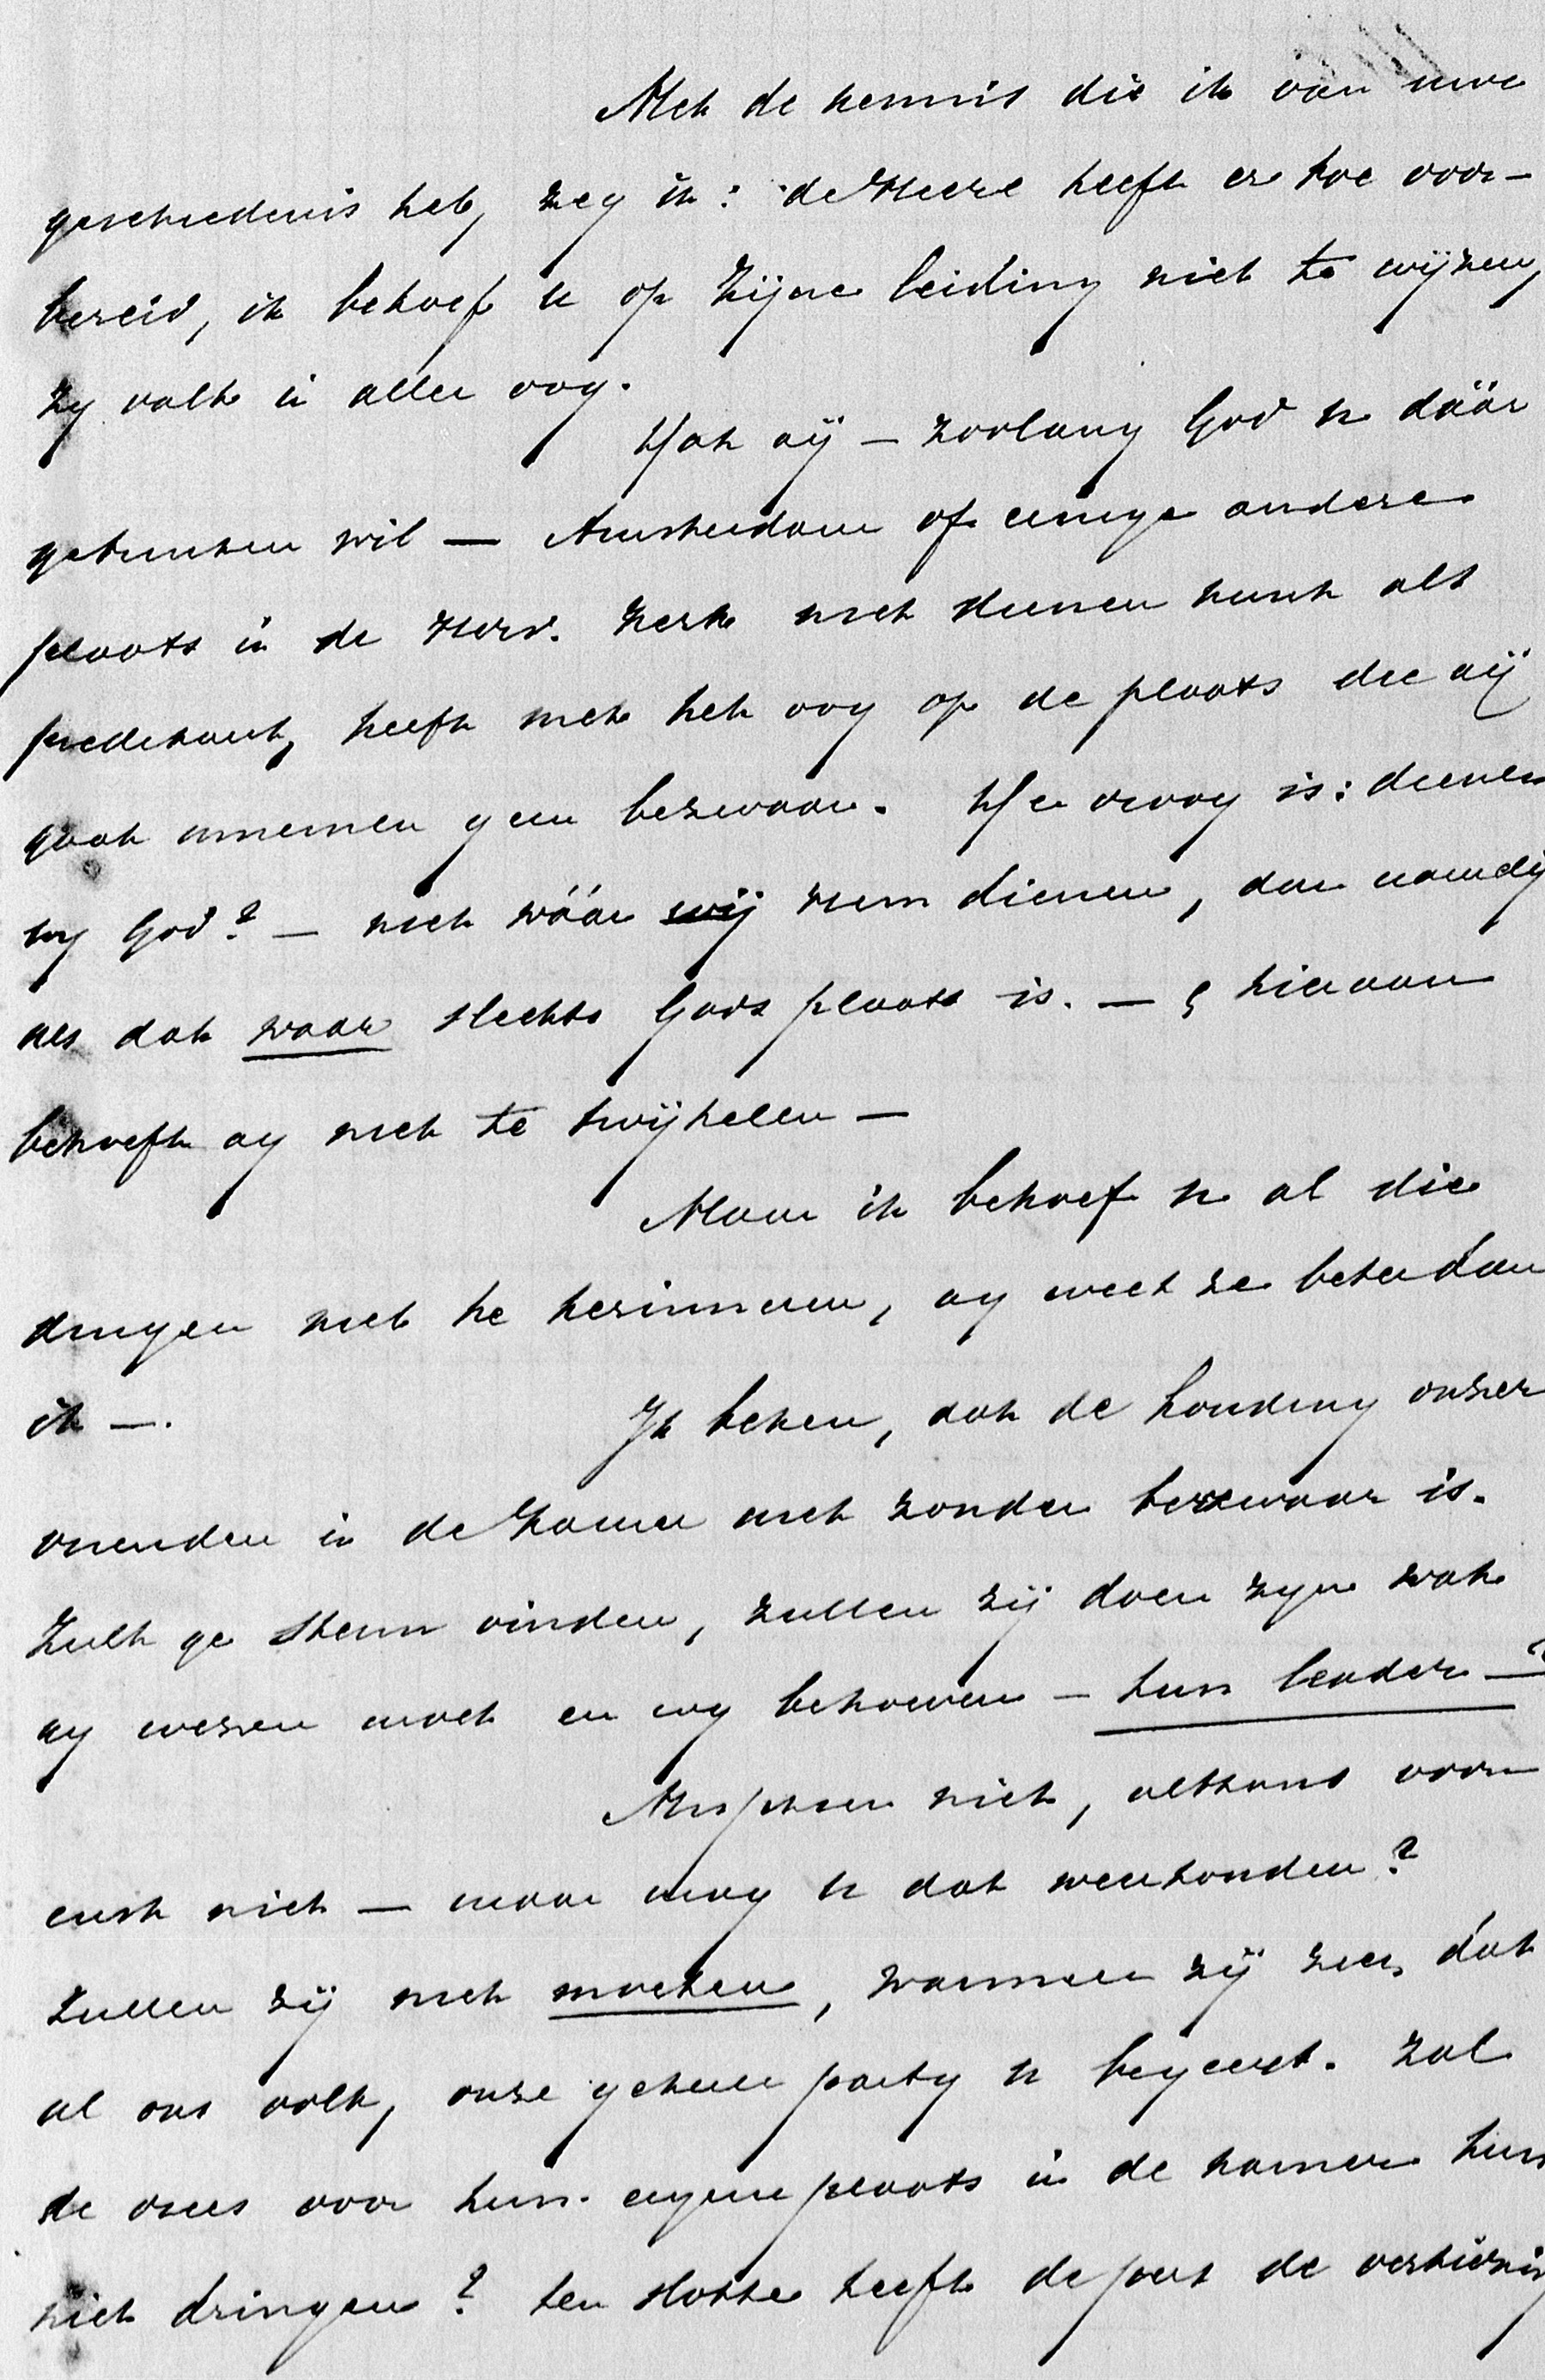 Met de kennis die ik van uwe
geschiedenis heb, zeg ik: de Heere heeft er toe voor-
bereid, ik behoef u op Zijne leiding niet te wijzen,
zy valt in aller oog.
Dat gij — zoolang God u dáár
gebruiken wil — Amsterdam of eenige andere
plaats in de Herv. Kerk niet dienen kunt als
predikant, heeft met het oog op de plaats die gij
gaat innemen geen bezwaar. De vraag is: dienen
wy God? — niet wáár wij Hem dienen, dan namelij
als dat waar slechts Gods plaats is. — & hieraan
behoeft gy niet te twijfelen —
Maar ik behoef u al die
dingen niet te herinneren, gy weet ze beter dan
ik —.
Ik beken, dat de houding onzer
vrienden in de Kamer niet zonder bezwaar is.
Zult ge steun vinden, zullen zij doen zyn wat
gy wezen moet en wy behoeven — hun leader —?
Misschien niet, althans voor
eerst niet — maar mag u dat weerhouden?
Zullen zij niet moeten, wanneer zij zien, dat
al ons volk, onze geheele party u begeert. Zal
de vrees voor hun eigene plaats in de kamer hun
niet dringen? ten slotte heeft de pers de verkiezing